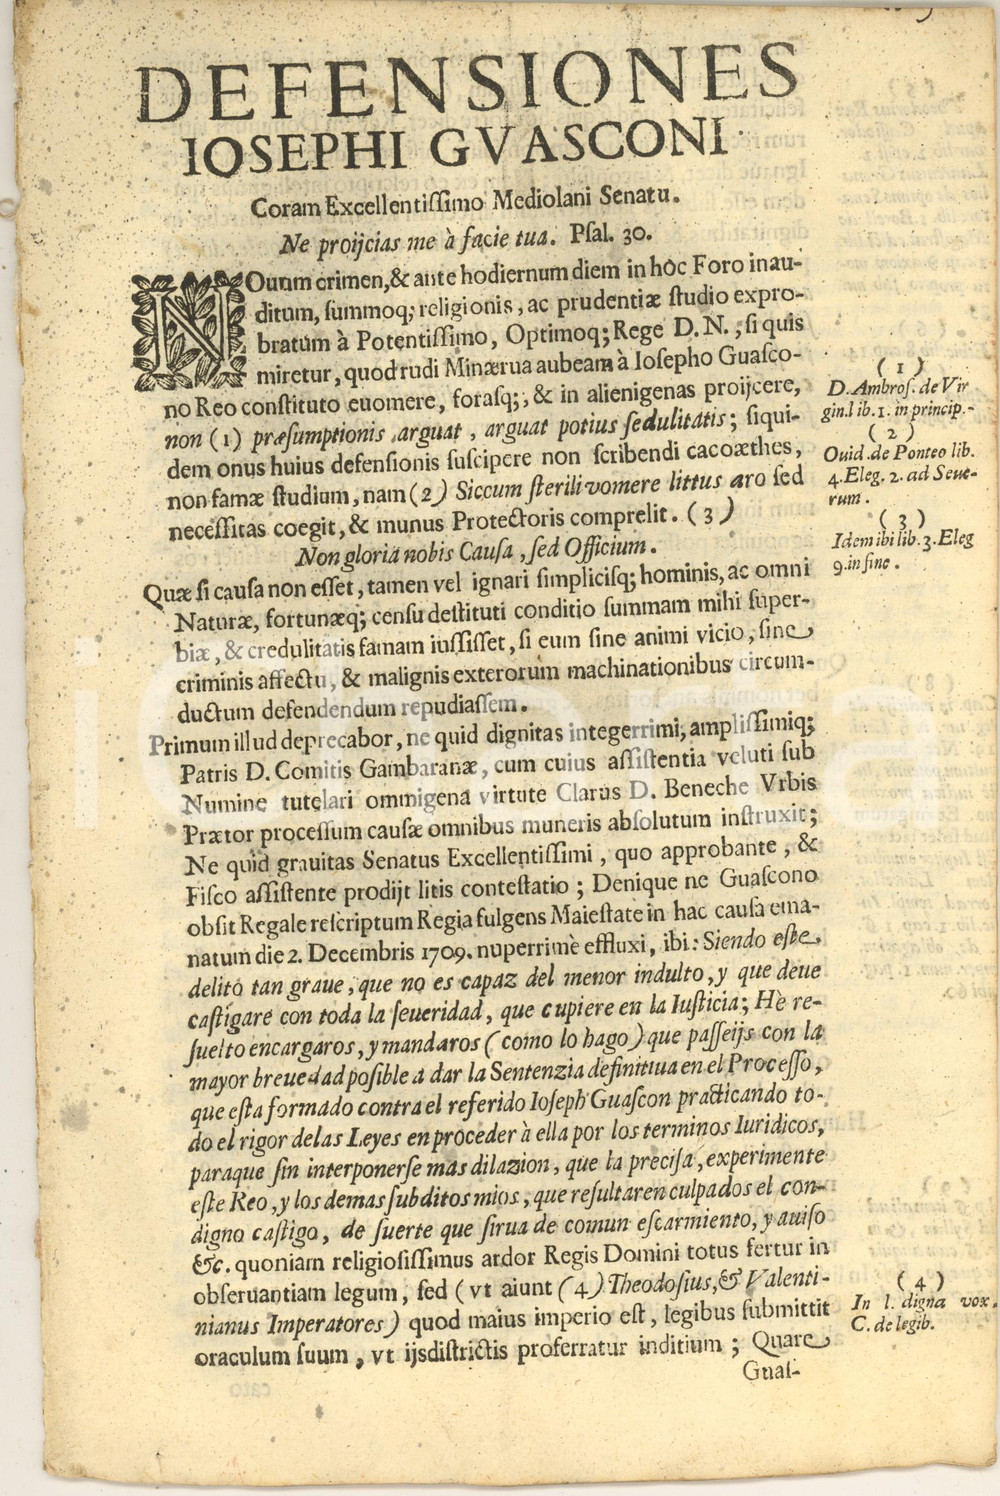 DEFENSIONES
IOSEPHI GVASCONI
Coram Excellentiſſimo Mediolani Senatu.
Ne proijcias me à facie tua. Pſal. 30.
NOuum crimen,& ante hodiernum diem in hòc Foro inau-
ditum, ſummoq; religionis, ac prudentiæ ſtudio expro-
bratum à Potentiſſimo, Optimoq; Rege D.N., ſi quis
miretur, quod rudi Minærua aubeam à Ioſepho Guaſco-
no Reo conſtituto euomere, foraſq;, & in alienigenas proijcere,
non (1) præſumptionis arguat, arguat potius ſedulitatis; ſiqui-
dem onus huius defenſionis ſuſcipere non ſcribendi cacoæthes,
non famæ ſtudium, nam (2) Siccum ſterili vomere littus aro ſed
neceſſitas coegit, & munus Protectoris comprelit. (3)
Non gloria nobis Cauſa, ſed Officium.
Quæ ſi cauſa non eſſet, tamen vel ignari ſimpliciſq; hominis, ac omni
Naturæ, fortunæq; cenſu deſtituti conditio ſummam mihi ſuper-
biæ, & credulitatis famam iuſſiſſet, ſi eum ſine animi vicio, ſine
criminis affectu, & malignis exterorum machinationibus circum-
ductum defendendum repudiaſſem.
Primum illud deprecabor, ne quid dignitas integerrimi, ampliſſimiq;
Patris D. Comitis Gambaranæ, cum cuius aſſiſtentia veluti ſub
Numine tutelari ommigena virtute Clarus D. Beneche Vrbis
Prætor proceſſum cauſæ omnibus muneris abſolutum inſtruxit;
Ne quid grauitas Senatus Excellentiſſimi, quo approbante, &
Fiſco aſſiſtente prodijt litis conteſtatio; Denique ne Guaſcono
obſit Regale reſcriptum Regia fulgens Maieſtate in hac cauſa ema-
natum die 2. Decembris 1709. nuperrimè effluxi, ibi: Siendo eſte
delito tan graue, que no es capaz del menor indulto, y que deue
caſtigare con toda la ſeueridad, que cupiere en la Iuſticia; Hè re-
ſuelto encargaros, y mandaros (como lo hago) que paſſeijs con la
mayor breuedad poſible a dar la Sentenzia definitiua en el Proceſſo,
que eſta formado contra el referido Ioſeph Guaſcon practicando to-
do el rigor de las Leyes en proceder à ella por los terminos Iuridicos,
paraque ſin interponerſe mas dilazion, que la preciſa, experimente
eſte Reo, y los demas ſubditos mios, que reſultaren culpados el con-
digno caſtigo, de ſuerte que ſirua de comun eſcarmiento, y auiſo
&c. quoniam religioſiſſimus ardor Regis Domini totus fertur in
obſeruantiam legum, ſed (vt aiunt (4) Theodoſius, & Valenti-
nianus Imperatores) quod maius imperio eſt, legibus ſubmittit
oraculum ſuum, vt ijsdiſtrictis proferratur inditium; Quare
Guaſ-
(1)
D. Ambroſ. de Vir
gin. lib. 1. in princip.-
(2)
Ouid. de Ponteo lib.
4. Eleg. 2. ad Seue-
rum.
(3)
Idem ibi lib. 3. Eleg
9. in fine.
(4)
In l. digna vox.
C. de legib.